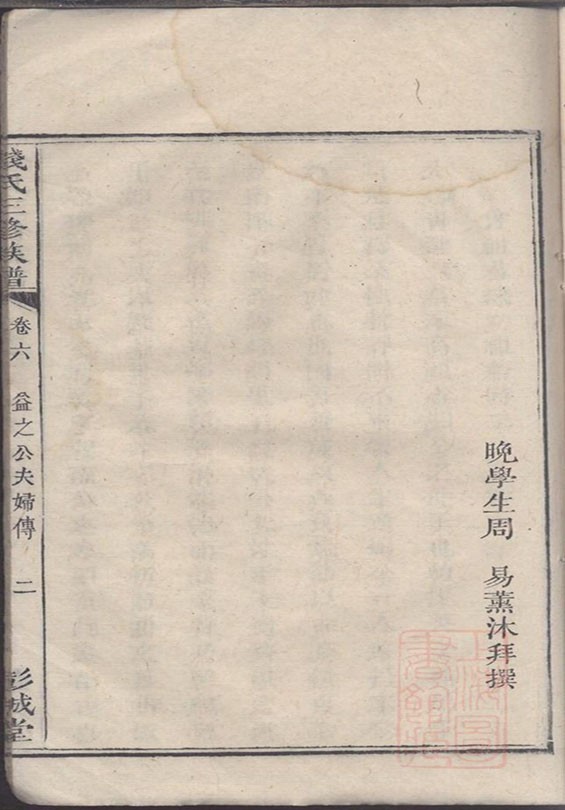 晚學生周 易薰沐拜撰
錢氏三修族譜 卷六 益之公夫婦傳 二 彭城堂